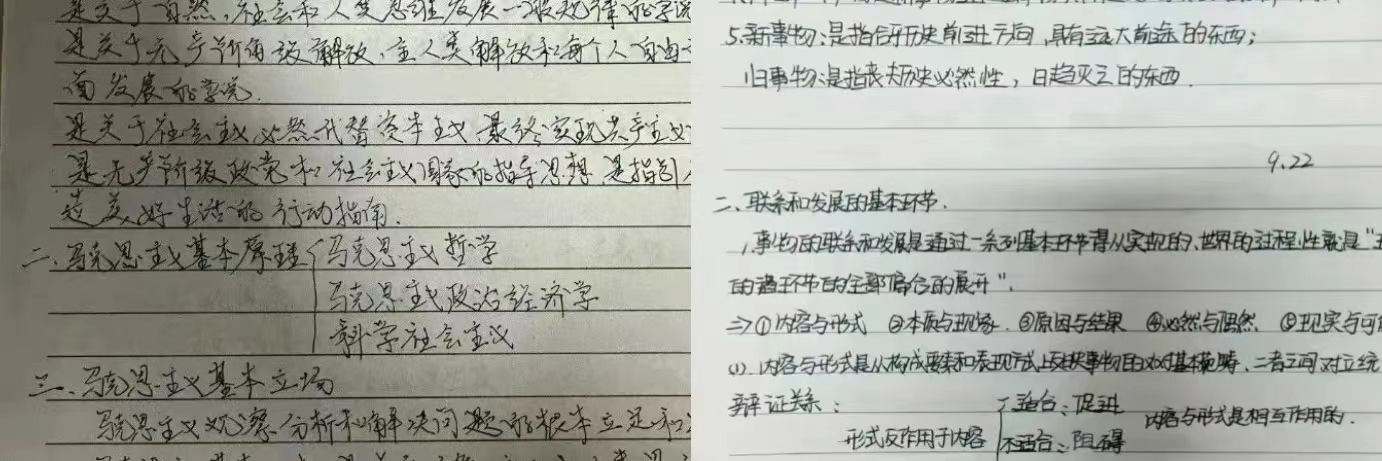 是关于自然、社会和人类思维发展一般规律的学说
是关于无产阶级解放、全人类解放和每个人自由
面发展的学说.
是关于社会主义必然代替资本主义、最终实现共产主义
是无产阶级政党和社会主义国家的指导思想,是指引
造美好生活的行动指南.
二、马克思主义基本原理 马克思主义哲学
马克思主义政治经济学
科学社会主义
三、马克思主义基本立场
马克思主义观察、分析和解决问题的根本立足和
5.新事物:是指合乎历史前进方向,具有远大前途的东西;
旧事物:是指丧失历史必然性,日趋灭亡的东西.
9.22
二、联系和发展的基本环节.
1,事物的联系和发展是通过一系列基本环节得以实现的,世界的过程性就是“
的诸环节的全部宿合的展开”.
=>①内容与形式 ②本质与现象 ③原因与结果 ④必然与偶然 ⑤现实与可
(1).内容与形式是从构成要素和表现方式上反映事物的一对基本范畴,二者之间对立统
辩证关系: 适合:促进 内容与形式是相互作用的.
形式反作用于内容 不适合:阻碍